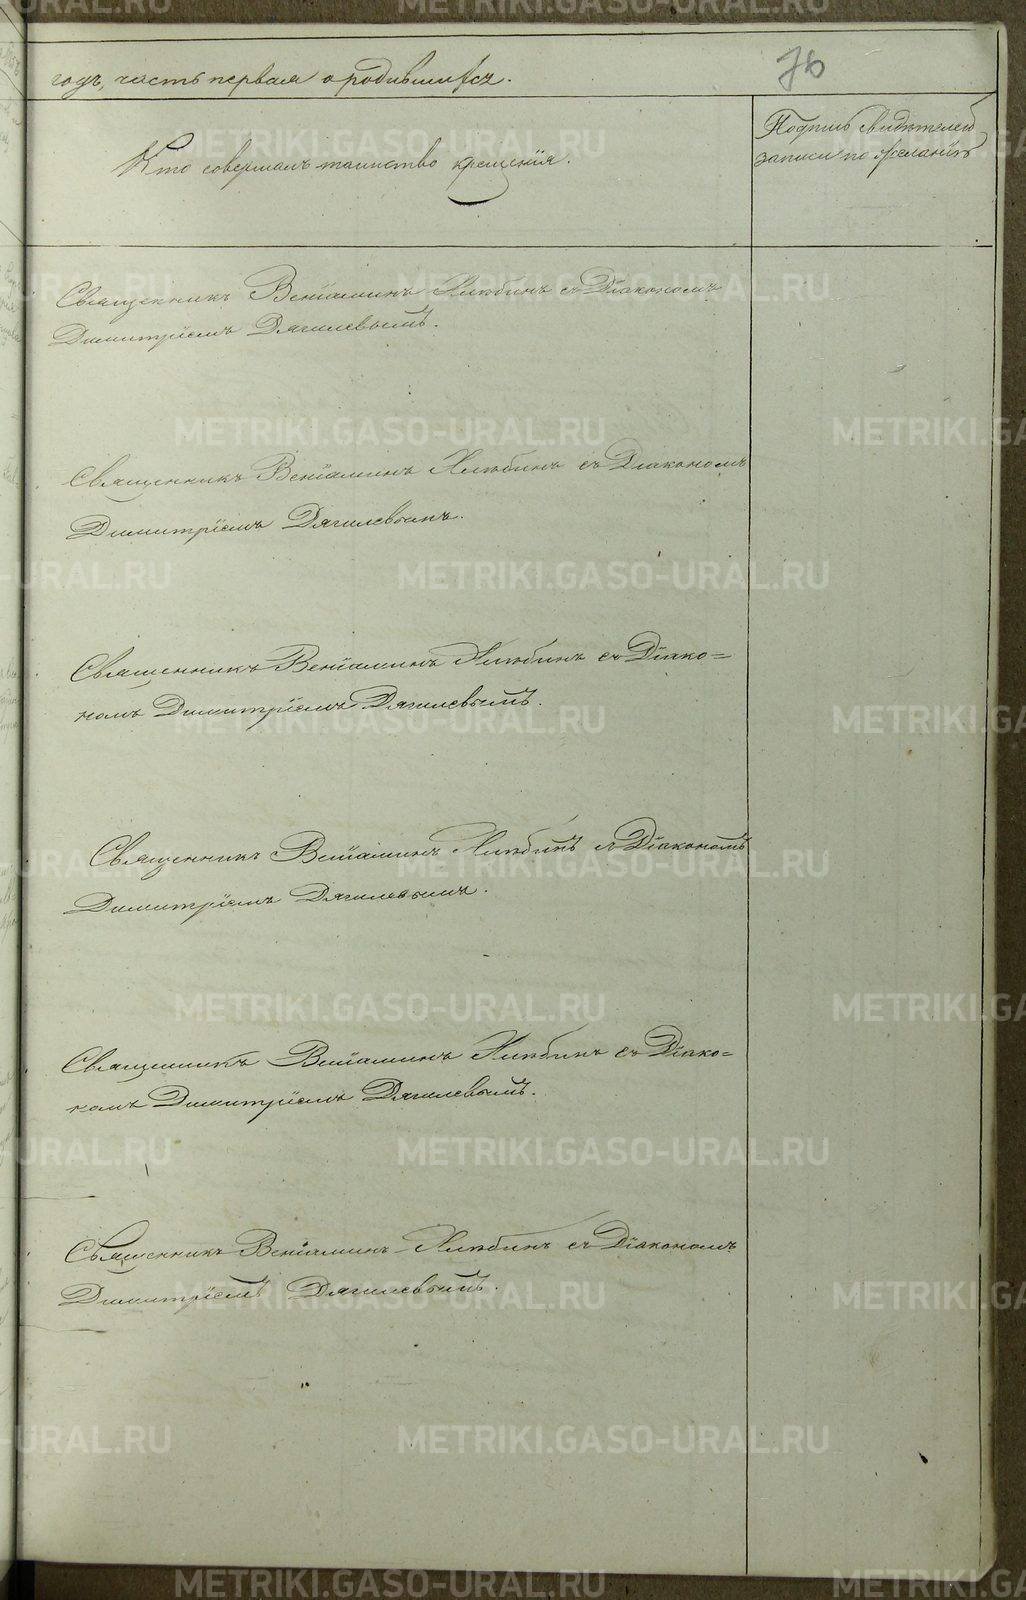 годъ, часть первая о родившихся.
76
Кто совершалъ таинство крещенія.
Подпись свидѣтелей
записи по желанію
Священникъ Веніаминъ Хлюбинъ съ Діакономъ
Димитріемъ Дягилевымъ.
Священникъ Веніаминъ Хлюбинъ съ Діакономъ
Димитріемъ Дягилевымъ.
Священникъ Веніаминъ Хлюбинъ съ Діако=
номъ Димитріемъ Дягилевымъ.
Священникъ Веніаминъ Хлюбинъ съ Діакономъ
Димитріемъ Дягилевымъ.
Священникъ Веніаминъ Хлюбинъ съ Діако=
номъ Димитріемъ Дягилевымъ.
Священникъ Веніаминъ Хлюбинъ съ Діакономъ
Димитріемъ Дягилевымъ.
METRIKI.GASO-URAL.RU